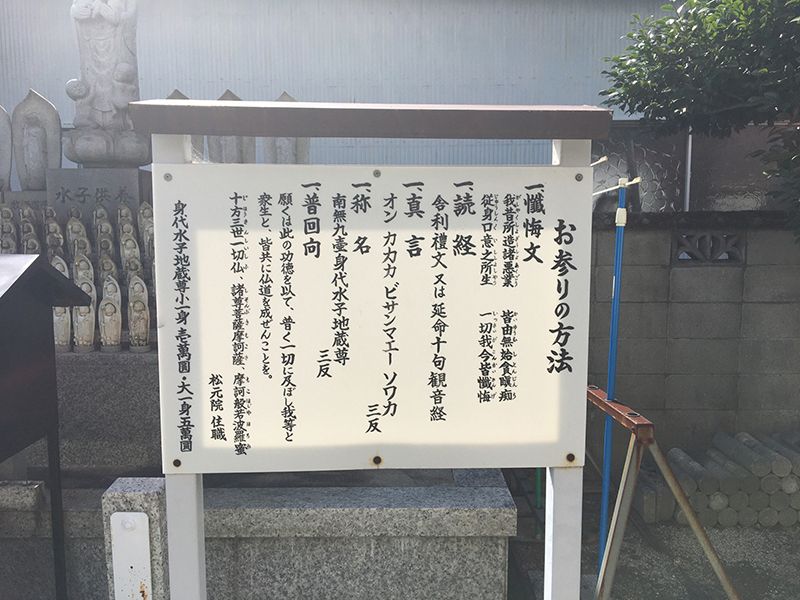 お参りの方法
一、懺悔文
我昔所造諸悪業 皆由無始貪瞋痴
従身口意之所生 一切我今皆懺悔
一、読経
舎利禮文 又は 延命十句観音経
一、真言
オン カカカ ビサンマエー ソワカ 三反
一、称名
南無九壷身代水子地蔵尊 三反
一、普回向
願くは此の功徳を以て、普く一切に及ぼし我等と
衆生と、皆共に仏道を成ぜんことを。
十方三世一切仏、諸尊菩薩摩訶薩、摩訶般若波羅蜜
松元院 住職
身代水子地蔵尊小一身壱萬圓・大一身五萬圓
水子供養